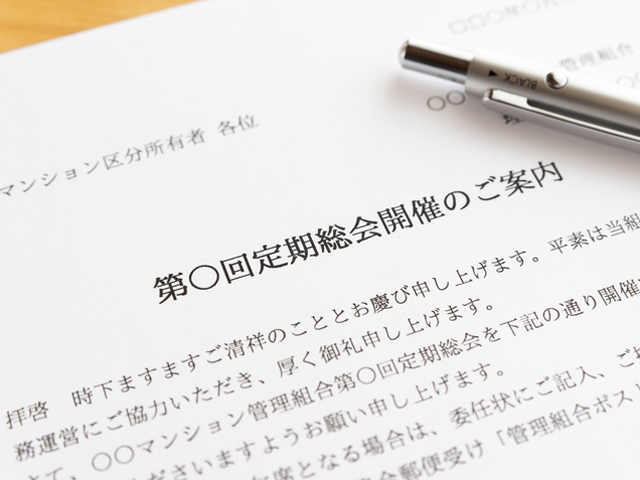 □□○年○月
管理組合
○○
マンション区分所有者 各位
第○回定期総会開催のご案内
拝啓 時下ますますご清祥のこととお慶び申し上げます。平素は当組
務運営にご協力いただき、厚く御礼申し上げます。
さて、○○マンション管理組合第○回定期総会を下記の通り開催
くださいますようお願い申し上げます。
欠席となる場合は、委任状にご記入、ご
郵便受け「管理組合ポス
BLACK